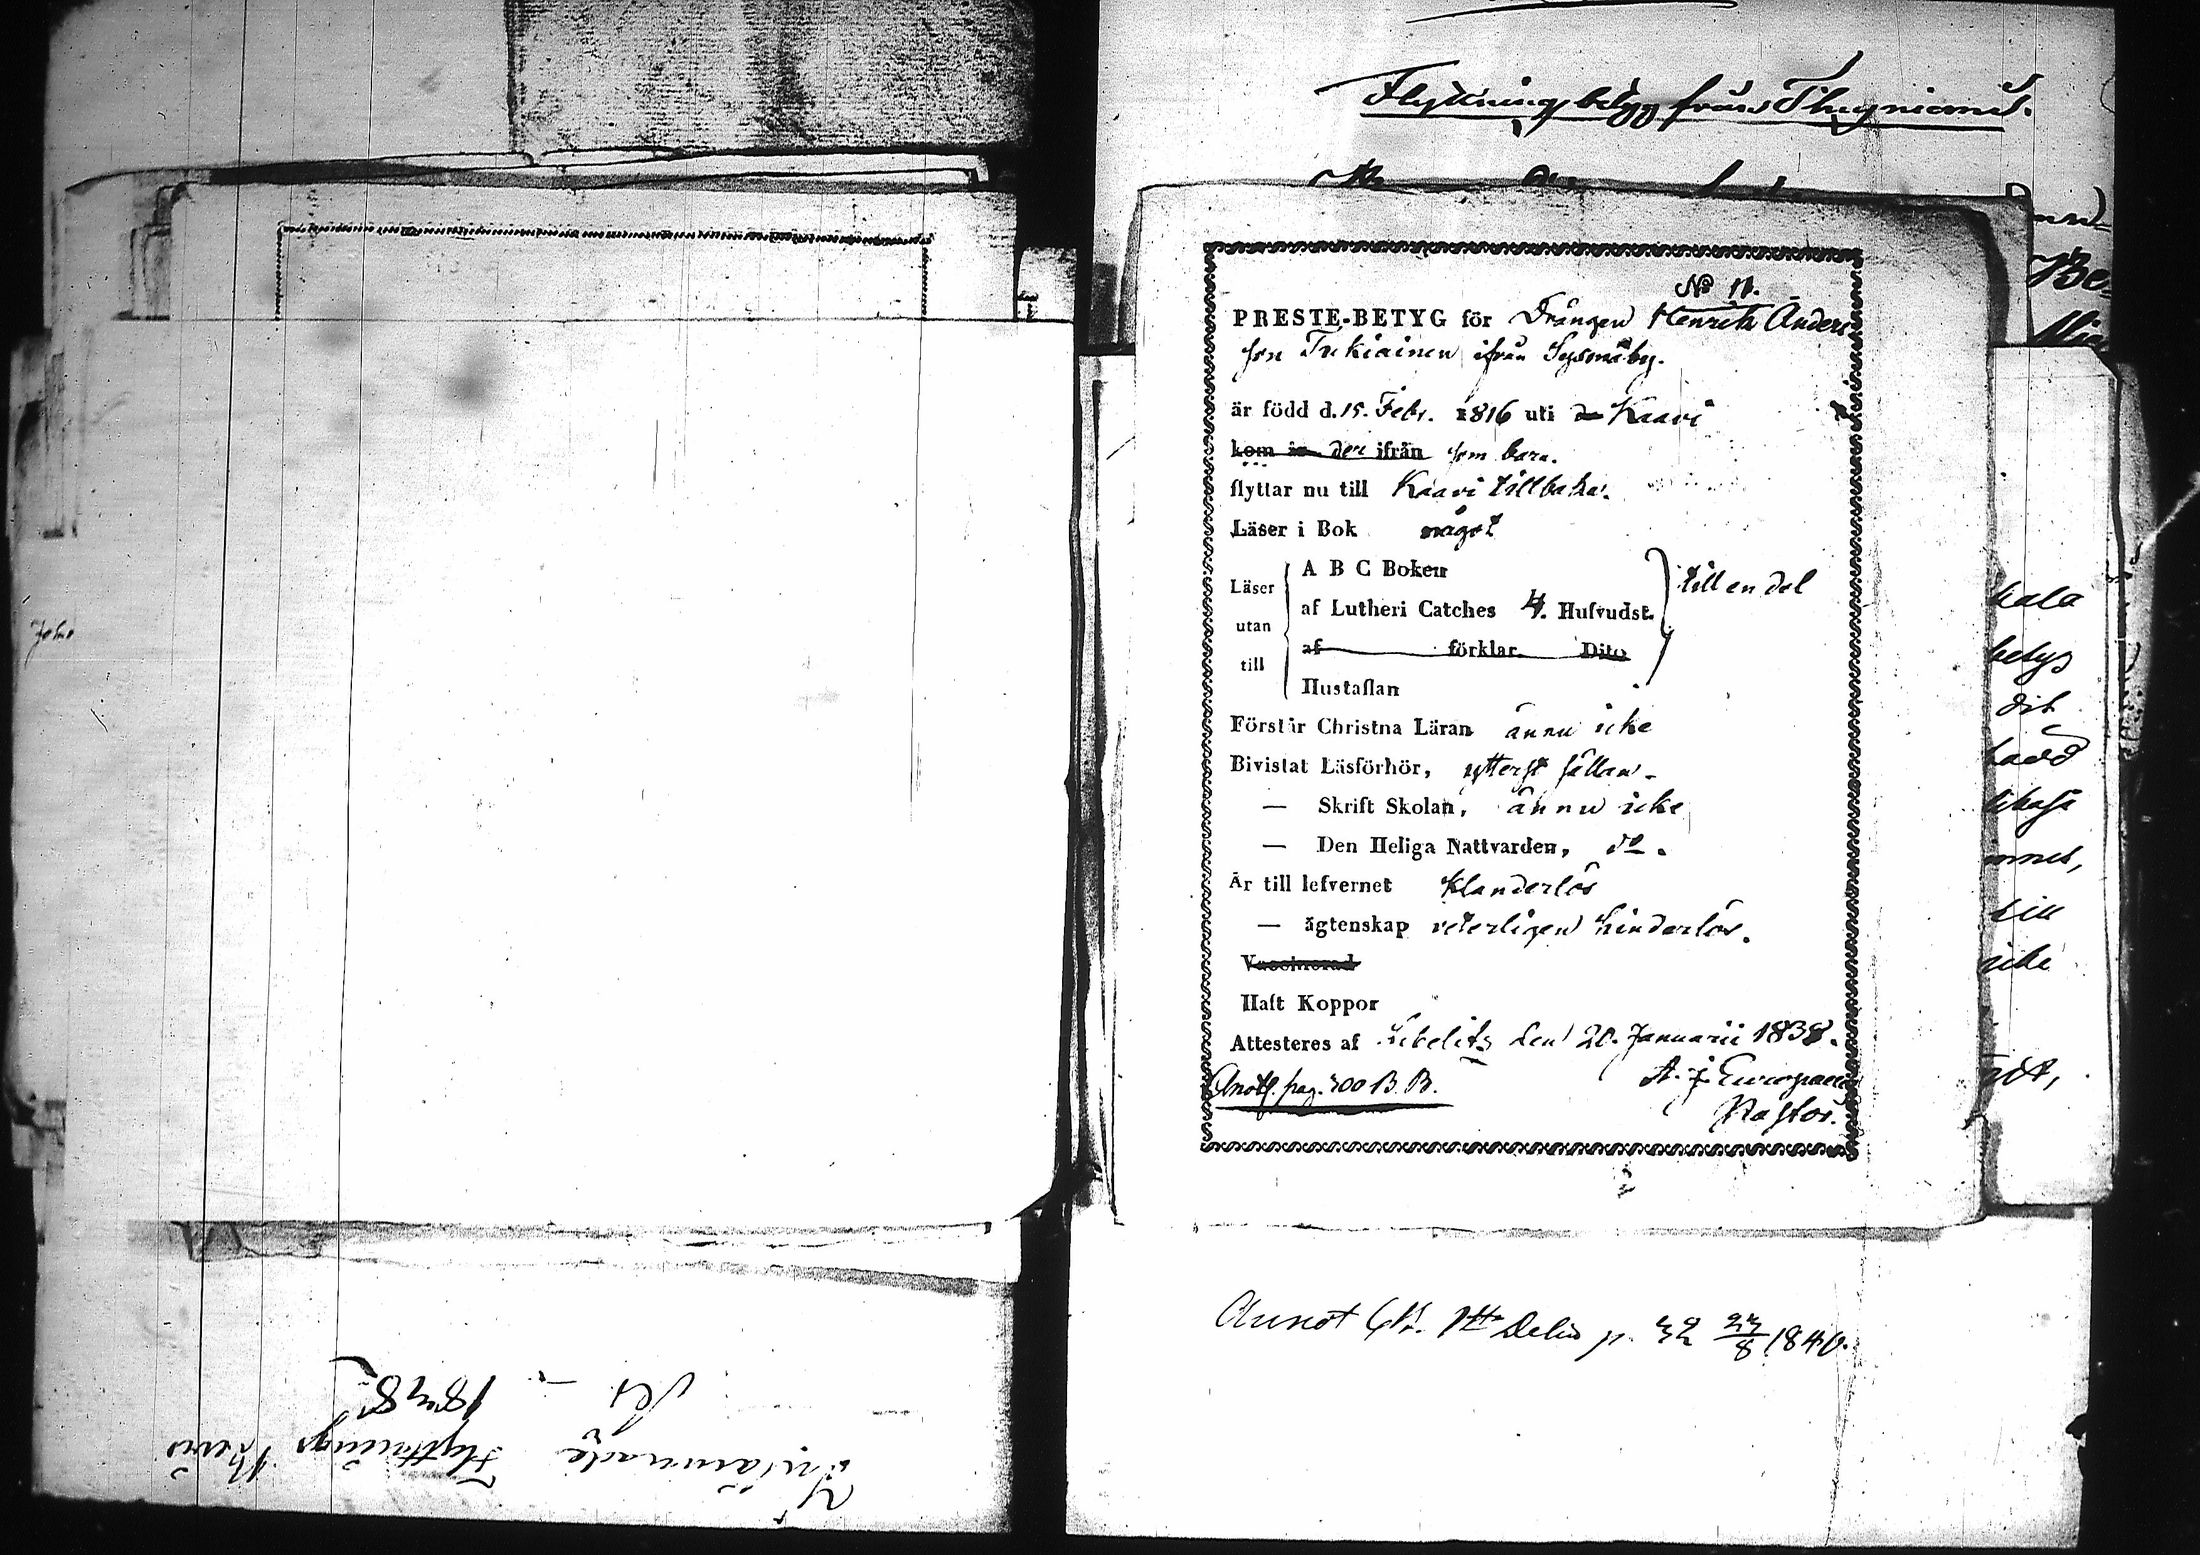 Flyttnings betyg från Thusniemi.
Be-
kala
betyg
dit
till
icke
Jehu
№ 11.
PRESTE-BETYG för Drängen Henrik Anders
son Tukiainen ifrån Sysmäby.
är född d. 15. Febr. 1816 uti Kaavi
kom in der ifrån som barn.
flyttar nu till Kaavi tillbaka.
Läser i Bok något
Läser utan till
A B C Boken
af Lutheri Catches 4. Hufvudst. till en del
af förklar. Dito
Hustaflan
Förstår Christna Läran ännu icke
Bivistat Läsförhör, ytterst sällan.
— Skrift Skolan, ännu icke
— Den Heliga Nattvarden, do.
Är till lefvernet klanderlös
— ägtenskap veterligen hinderlös.
Vaccinerad
Haft Koppor
Attesteres af Libelits den 20. Januarii 1838.
A. J. Europaeus
Pastor.
Anotf. pag. 700 B. B.
Annot p. 32 27/8 1840.
Inlämnade Flyttnings Bevis
1848